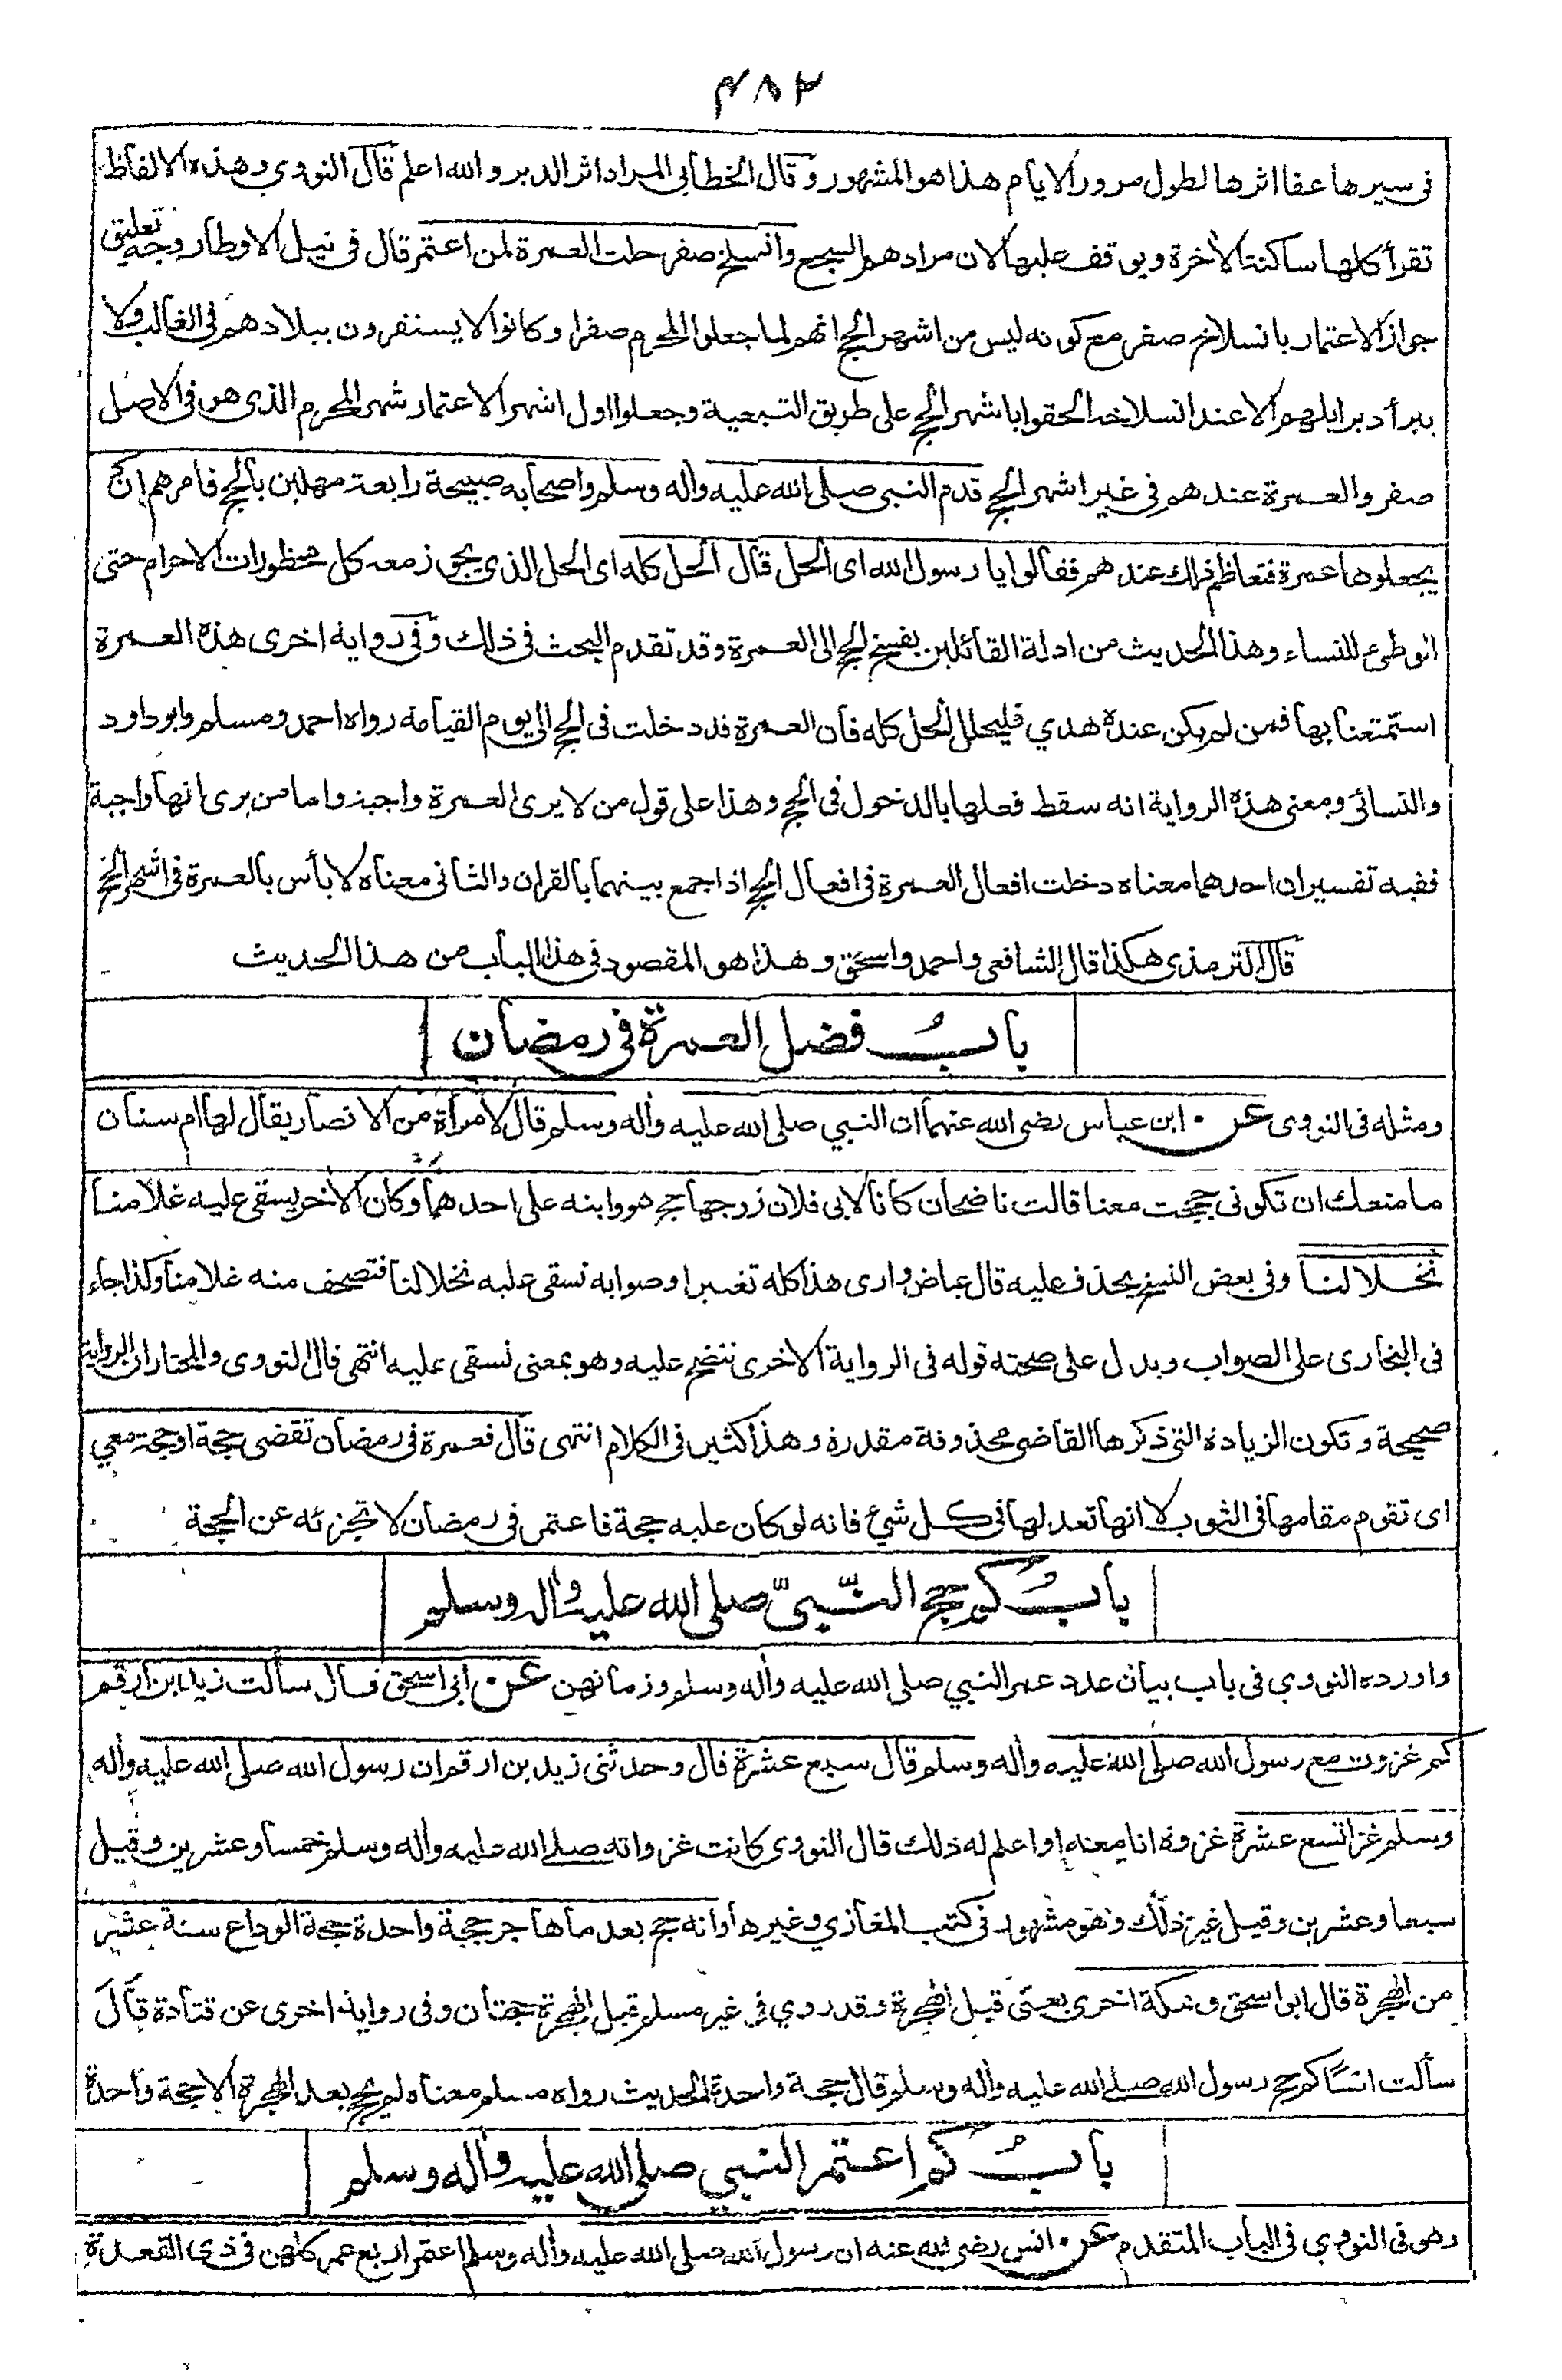 ٤٨٢
في سيرها عفا اثرها لطول مرور الايام هذا هو المشهور وقال الخطابي المراد اثر الدبر والله اعلم قال النووي وهذه الالفاظ
تقرأ كلها ساكنة الاخرة ويوقف عليها لان مرادهم السجع وانسلخ صفر حلت العمرة لمن اعتمر قال في نيل الاوطار وجه تعليق
جواز الاعتمار بانسلاخ صفر مع كونه ليس من اشهر الحج انهم لما جعلوا المحرم صفرا وكانوا لا يستنفرون ببلادهم في الغالب ولا
يبرأ دبر ابلهم الا عند انسلاخه الحقوا باشهر الحج على طريق التبعية وجعلوا اول اشهر الاعتمار شهر المحرم الذي هو في الاصل
صفر والعمرة عندهم في غير اشهر الحج قدم النبي صلى الله عليه واله وسلم واصحابه صبيحة رابعة مهلين بالحج فامرهم ان
يجعلوها عمرة فتعاظم ذلك عندهم فقالوا يا رسول الله اى الحل قال الحل كله اى الحل الذي يجوز معه كل محظورات الاحرام حتى
الوطئ للنساء وهذا الحديث من ادلة القائلين بفسخ الحج الى العمرة وقد تقدم البحث في ذلك وفي رواية اخرى هذه العمرة
استمتعنا بها فمن لم يكن عنده هدي فليحلل الحل كله فان العمرة قد دخلت في الحج الى يوم القيامه رواه احمد ومسلم وابو داود
والنسائي ومعنى هذه الرواية انه سقط فعلها بالدخول في الحج وهذا على قول من لا يرى العمرة واجبة واما من يرى انها واجبة
ففيه تفسيران احدهما معناه دخلت افعال العمرة في افعال الحج اذا جمع بينهما بالقران والثاني معناه لا بأس بالعمرة في اشهر الحج
قال الترمذى هكذا قال الشافعي واحمد واسحق وهذا هو المقصود في هذا الباب من هذا الحديث
باب فضل العمرة في رمضان
ومثله في النووى عن ابن عباس رضي الله عنهما ان النبي صلى الله عليه واله وسلم قال لامرأة من الانصار يقال لها ام سنان
ما منعك ان تكوني حججت معنا قالت ناضحان كانا لابي فلان زوجها حج هو وابنه على احدهما وكان الاخر يسقى عليه غلامنا
نخلا لنا وفي بعض النسخ بحذف عليه قال عياض وارى هذا كله تغييرا وصوابه نسقي عليه نخلا لنا فتصحف منه غلامنا وكذا جاء
في البخارى على الصواب ويدل على صحته قوله في الرواية الاخرى ننضح عليه وهو بمعنى نسقي عليه انتهى قال النووى والمختار ان الرواية
صحيحة وتكون الزيادة التي ذكرها القاضي محذوفة مقدرة وهذا كثير في الكلام انتهى قال فعمرة في رمضان تقضي حجة او حجة معي
اى تقوم مقامها في الثوب لا انها تعدلها في كل شيء فانه لو كان عليه حجة فاعتمر في رمضان لا تجزئه عن الحجة
باب كم حج النبي صلى الله عليه واله وسلم
واورده النووي في باب بيان عدد عمر النبي صلى الله عليه واله وسلم وزمانهن عن ابي اسحق قال سألت زيد بن ارقم
كم غزوت مع رسول الله صلى الله عليه واله وسلم قال سبع عشرة قال وحدثني زيد بن ارقم ان رسول الله صلى الله عليه واله
وسلم غزا تسع عشرة غزوة انا معه او اعلم له ذلك قال النووى كانت غزواته صلى الله عليه واله وسلم خمسا وعشرين وقيل
سبعا وعشرين وقيل غير ذلك وهو مشهور في كتب المغازي وغيرها وانه حج بعد ما هاجر حجة واحدة حجة الوداع سنة عشر
من الهجرة قال ابو اسحق وبمكة اخرى يعني قبل الهجرة وقد روي في غير مسلم قبل الهجرة حجتان وفي رواية اخرى عن قتادة قال
سألت انسا كم حج رسول الله صلى الله عليه واله وسلم قال حجة واحدة الحديث رواه مسلم معناه لم يحج بعد الهجرة الا حجة واحدة
باب كم اعتمر النبي صلى الله عليه واله وسلم
وهو في النووي في الباب المتقدم عن انس رضي الله عنه ان رسول الله صلى الله عليه واله وسلم اعتمر اربع عمر كلهن في ذي القعدة